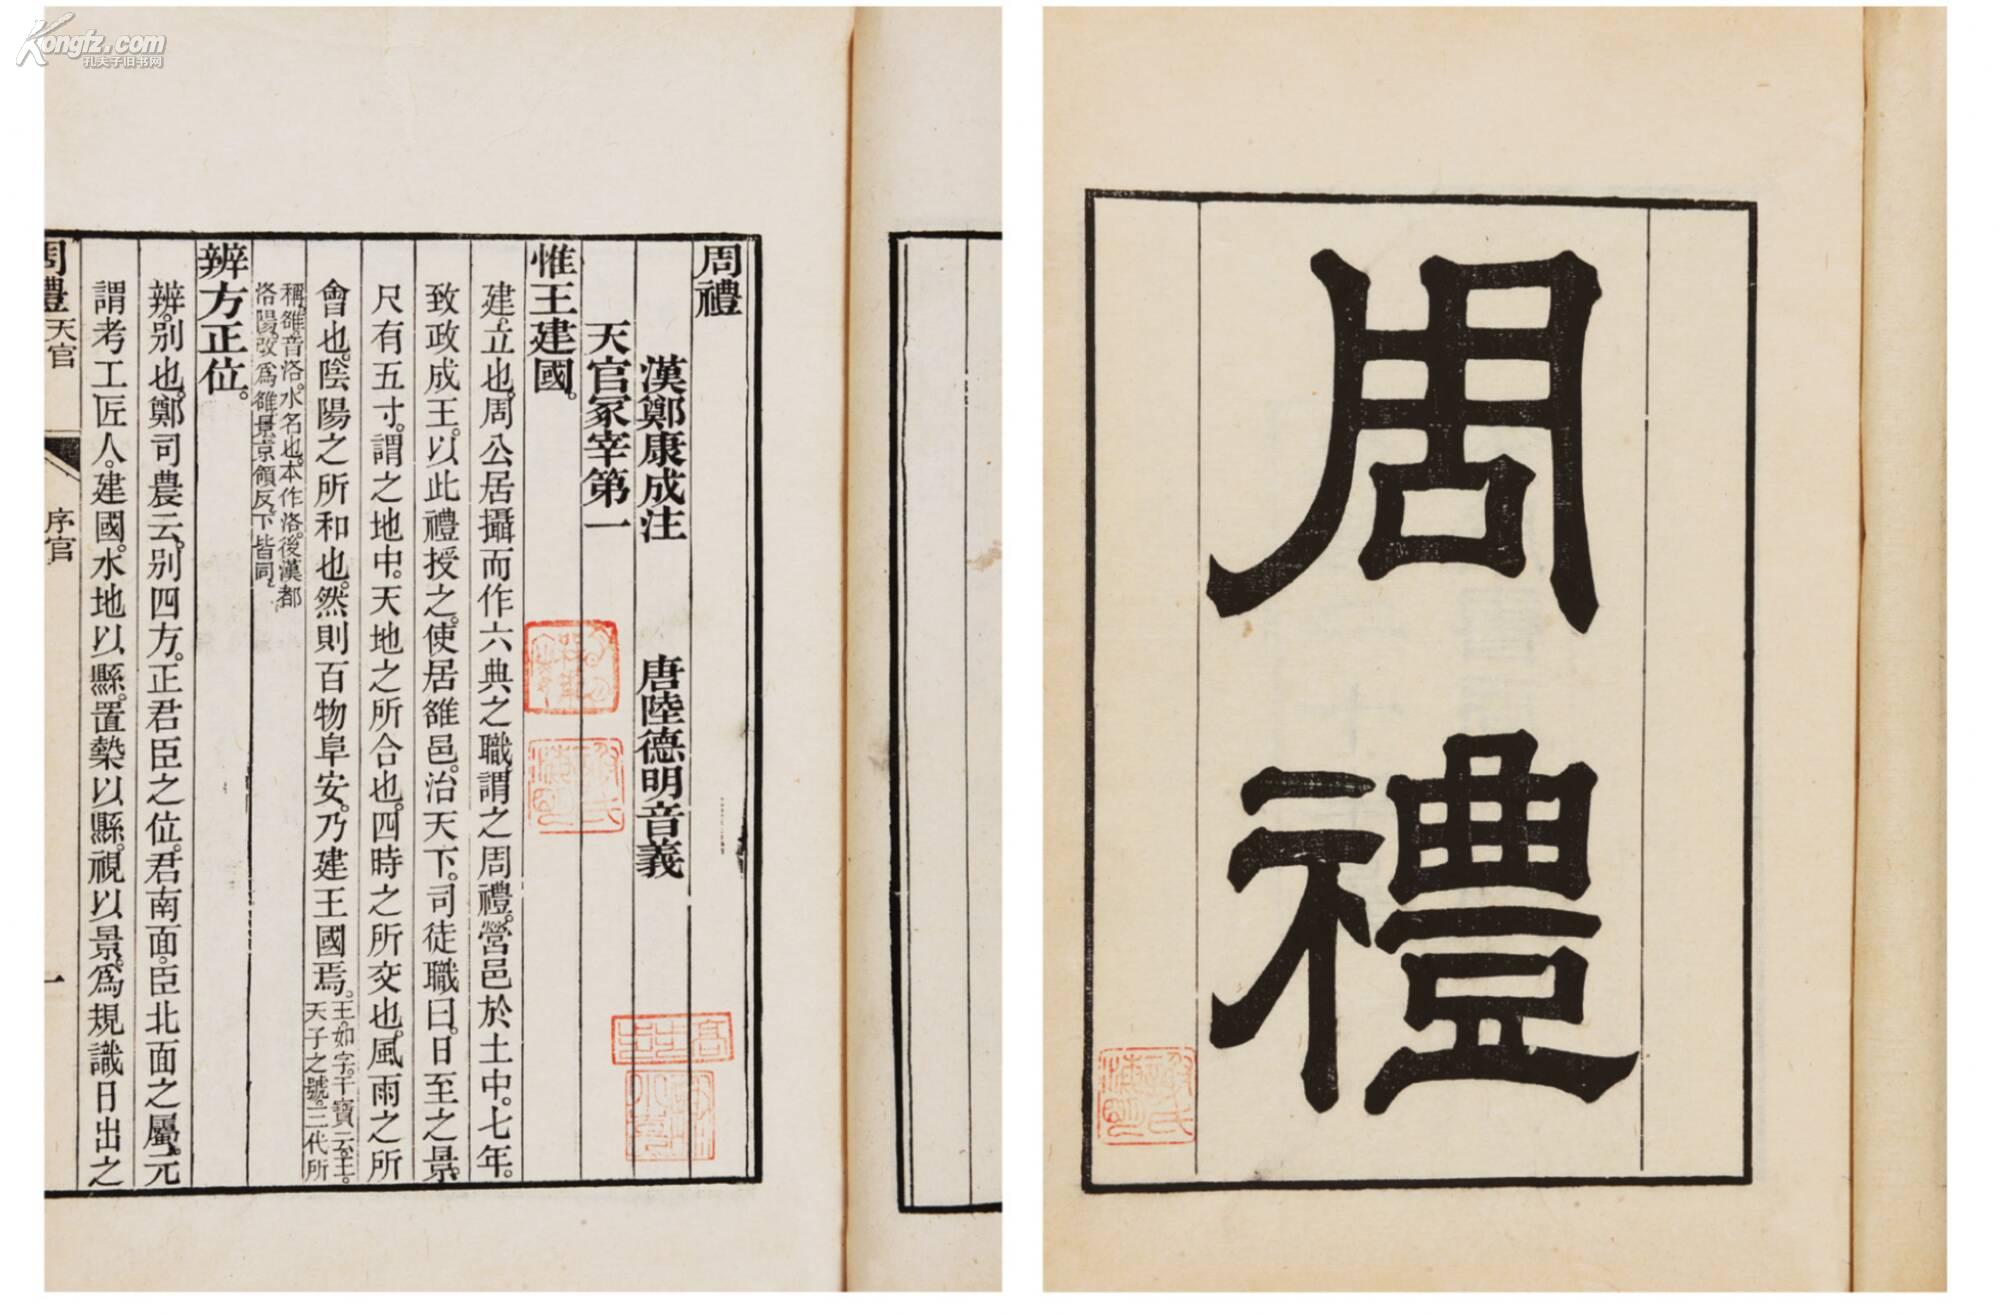 Kongfz.com
孔夫子旧书网
周禮
周禮
漢鄭康成注　唐陸德明音義
天官冢宰第一
惟王建國。
建。立也。周公居攝而作六典之職。謂之周禮。營邑於土中。七年。
致政成王。以此禮授之。使居雒邑。治天下。司徒職曰。日至之景。
尺有五寸。謂之地中。天地之所合也。四時之所交也。風雨之所
會也。陰陽之所和也。然則百物阜安。乃建王國焉。王。如字。干寶云。王。
天子之號。三代所
稱。雒。音洛。水名也。本作洛。後漢都
洛陽。改爲雒。景。京領反。下皆同。
辨方正位。
辨。别也。鄭司農云。别四方。正君臣之位。君南面。臣北面之屬。元
謂考工。匠人。建國。水地以縣。置槷以縣。視以景。爲規識日出之
周禮 天官 序官 一